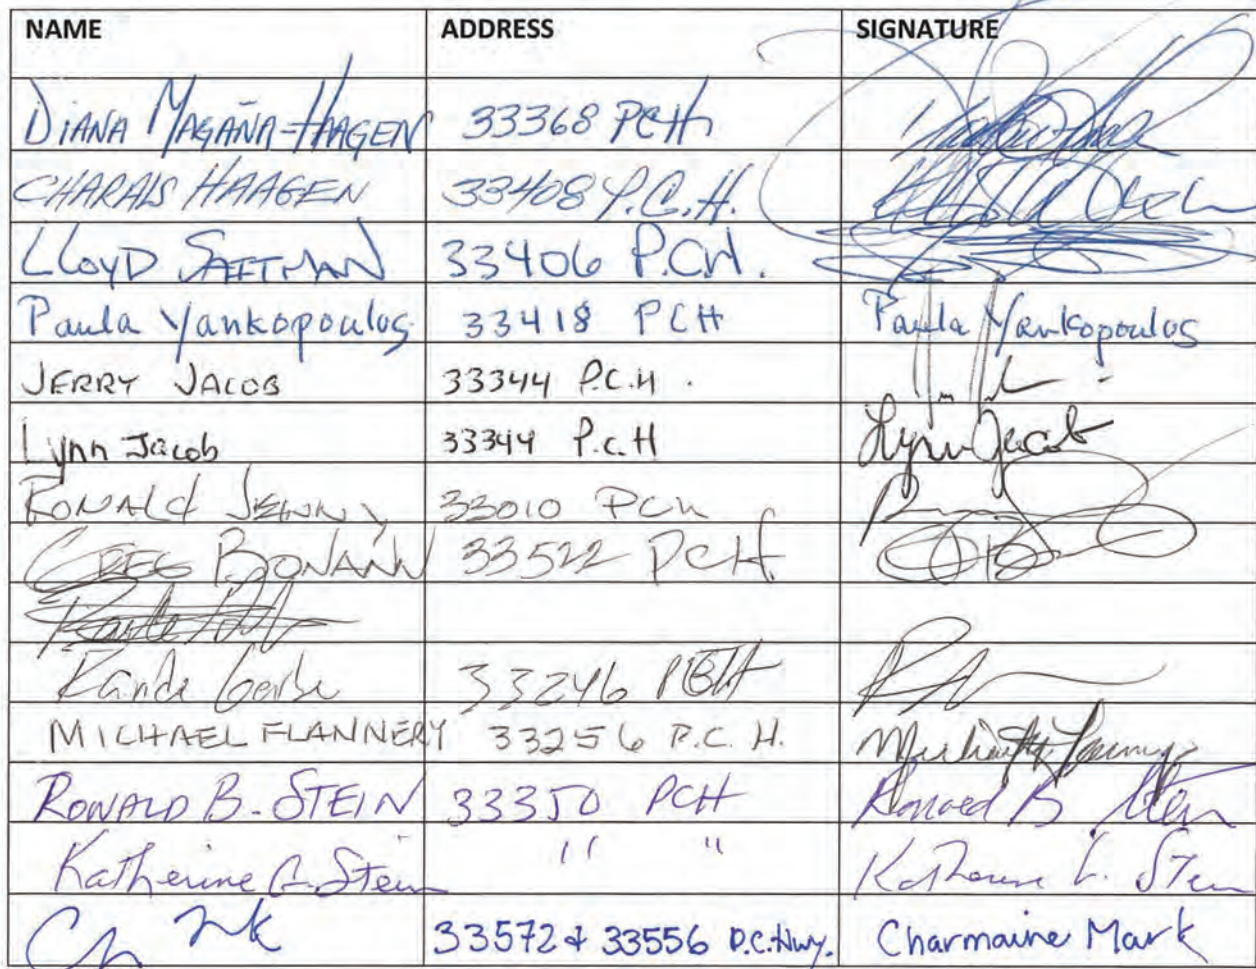 NAME ADDRESS SIGNATURE
DIANA MAGAÑA-HAAGEN 33368 PCH
CHARALS HAAGEN 33408 P.C.H.
LLOYD SAFTMAN 33406 P.C.H.
Paula Yankopoulos 33418 PCH Paula Yankopoulos
JERRY JACOB 33344 P.C.H.
Lynn Jacob 33344 P.C.H Lynn Jacob
RONALd 33010 PCH
GREG BONANN 33522 PCH
Rande Gerbe 33246 PCH
MICHAEL FLANNERY 33256 P.C.H.
RONALD B. STEIN 33350 PCH Ronald B Stein
Katherine G. Stein " " Katherine G. Stein
33572 & 33556 P.C.Hwy. Charmaine Mark